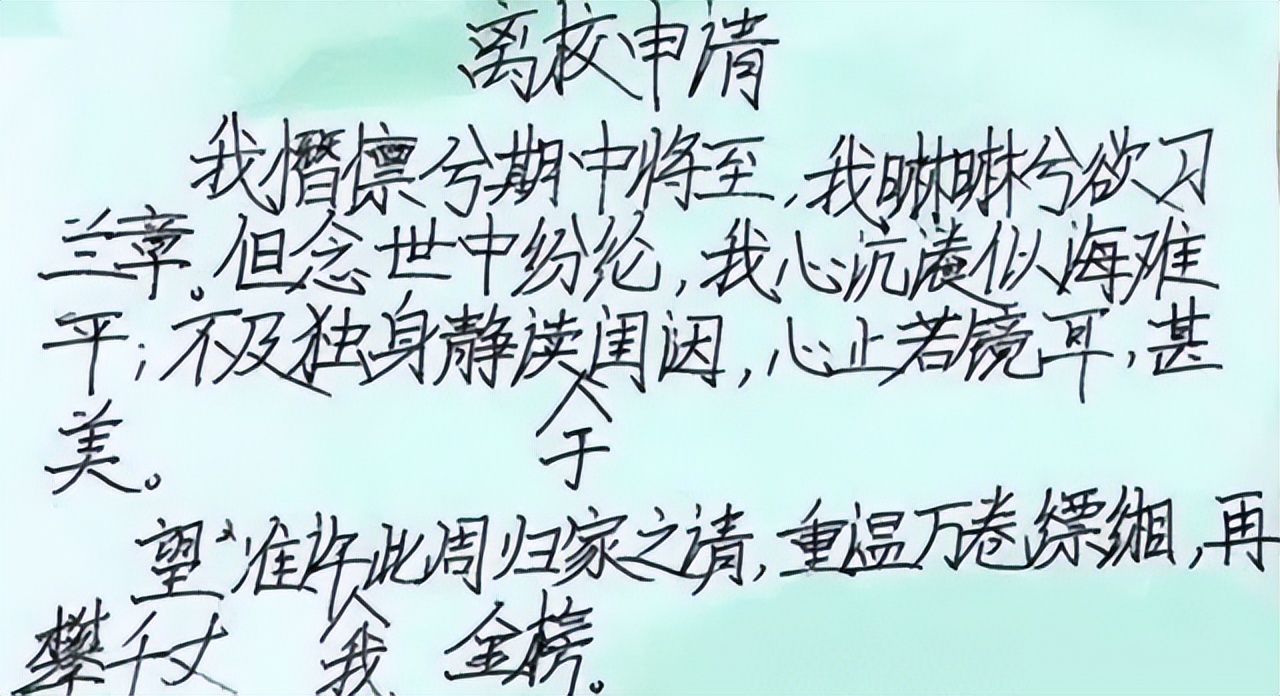 离校申请
我憯懔兮期中将至,我晽晽兮欲习
兰章。但念世中纷纶,我心沉似海难
平;不及独身静读闺洇,心止若镜耳,甚
于
美。
望准许此周归家之请,重温万卷缥缃,再
攀千丈 我 金榜。